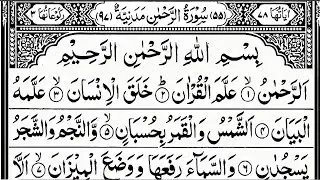 اٰيَاتُهَا ٧٨ (٥٥) سُوْرَةُ الرَّحْمٰنِ مَدَنِيَّةٌ (٩٧) رُكُوْعَاتُهَا ٣
بِسْمِ اللّٰهِ الرَّحْمٰنِ الرَّحِيْمِ
اَلرَّحْمٰنُ ۙ﴿۱﴾ عَلَّمَ الْقُرْاٰنَ ؕ﴿۲﴾ خَلَقَ الْاِنْسَانَ ۙ﴿۳﴾ عَلَّمَهُ
الْبَيَانَ ﴿۴﴾ اَلشَّمْسُ وَالْقَمَرُ بِحُسْبَانٍ ۙ﴿۵﴾ وَّالنَّجْمُ وَالشَّجَرُ
يَسْجُدٰنِ ﴿۶﴾ وَالسَّمَآءَ رَفَعَهَا وَوَضَعَ الْمِيْزَانَ ۙ﴿۷﴾ اَلَّا